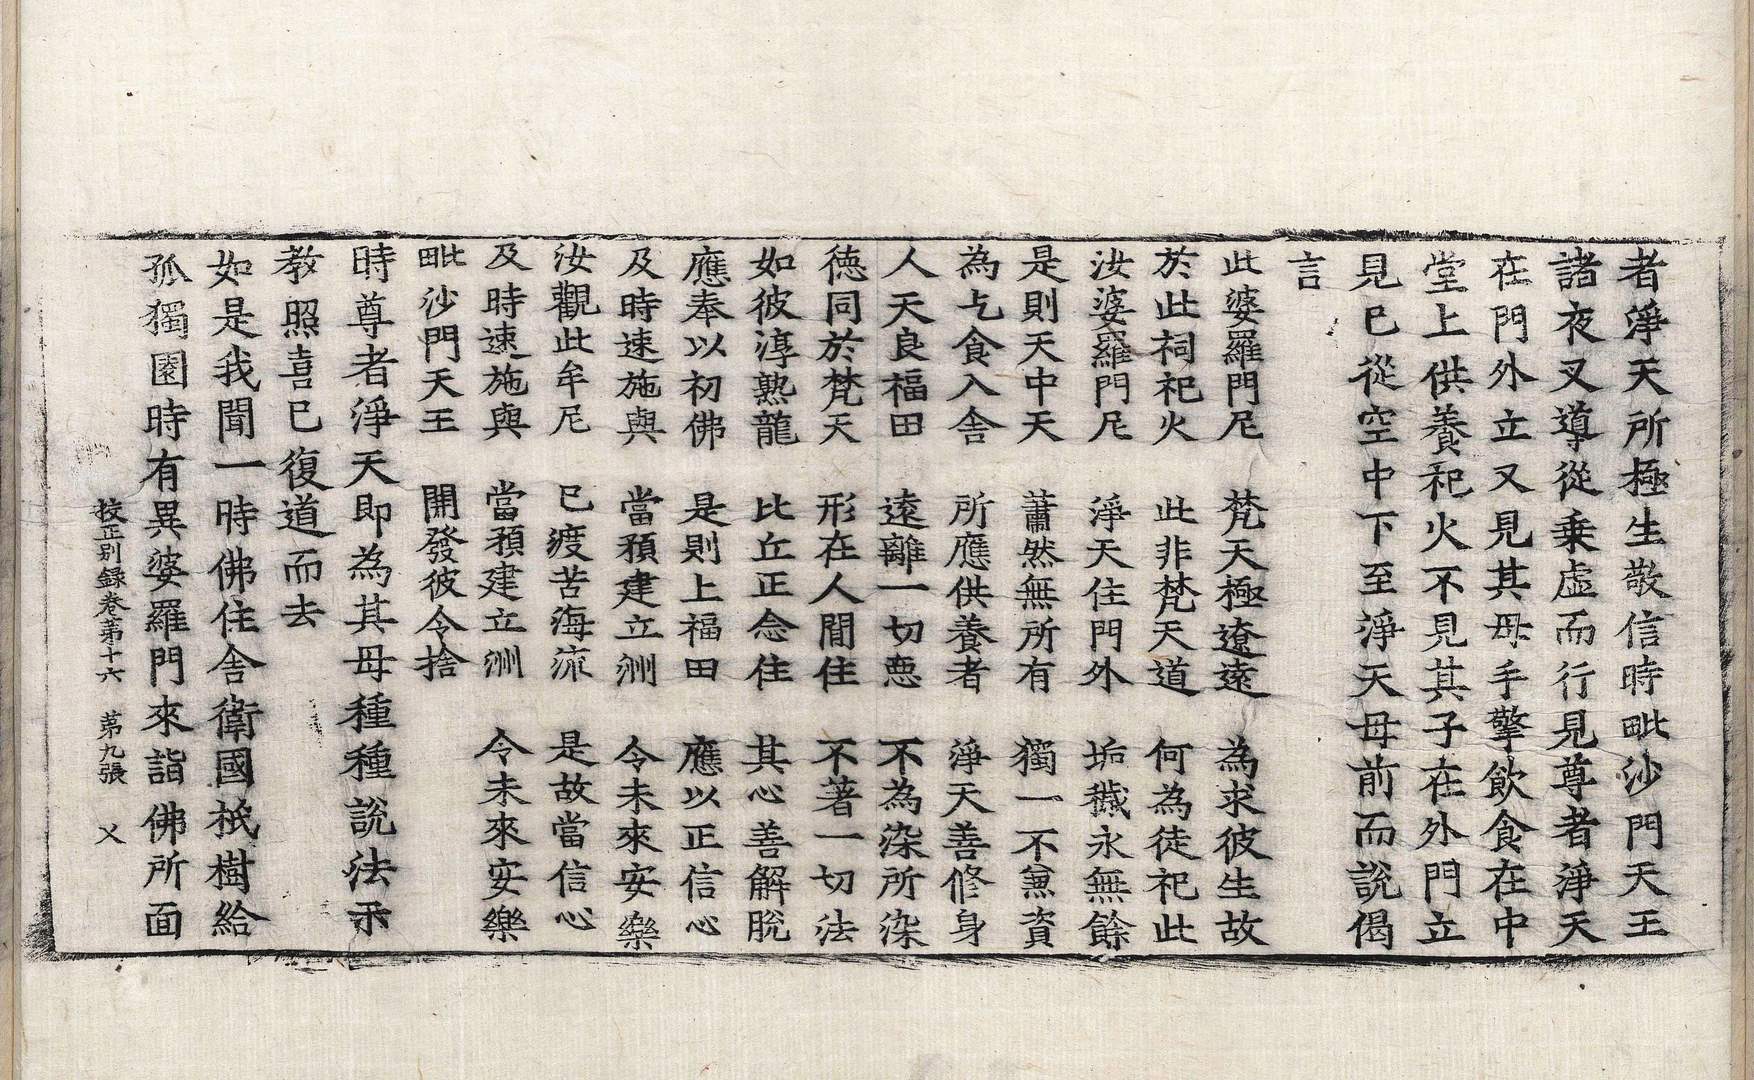 者淨天所極生敬信時毗沙門天王
諸夜叉導從乗虛而行見尊者淨天
在門外立又見其母手擎飲食在中
堂上供養祀火不見其子在外門立
見已從空中下至淨天母前而說偈
言
此婆羅門尼 梵天極遼遠 為求彼生故
於此祠祀火 此非梵天道 何為徒祀此
汝婆羅門尼 淨天住門外 垢穢永無餘
是則天中天 蕭然無所有 獨一不兼資
為乞食入舍 所應供養者 淨天善修身
人天良福田 遠離一切惡 不為染所染
徳同於梵天 形在人間住 不著一切法
如彼淳熟龍 比丘正念住 其心善解脫
應奉以初佛 是則上福田 應以正信心
及時速施與 當預建立洲 令未來安樂
汝觀此牟尼 已渡苦海流 是故當信心
及時速施與 當預建立洲 令未來安樂
毗沙門天王 開發彼令捨
時尊者淨天即為其母種種說法示
教照喜已復道而去
如是我聞一時佛住舍衛國祇樹給
孤獨園時有異婆羅門來詣佛所面
校正別録卷第十六 第九張 㐅